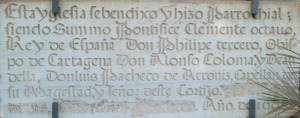 Esta yglesia se bendixo y hizo Parrochial;
siendo Summo Pontifice Clemente octavo,
Rey de España Don Philipe tercero, Obis-
po de Cartagena Don Alonso Coloma y De
della, Don luis Pacheco de Arronis, Capellan de
su Magestad y Señor deste Cortijo.
Año. de 160